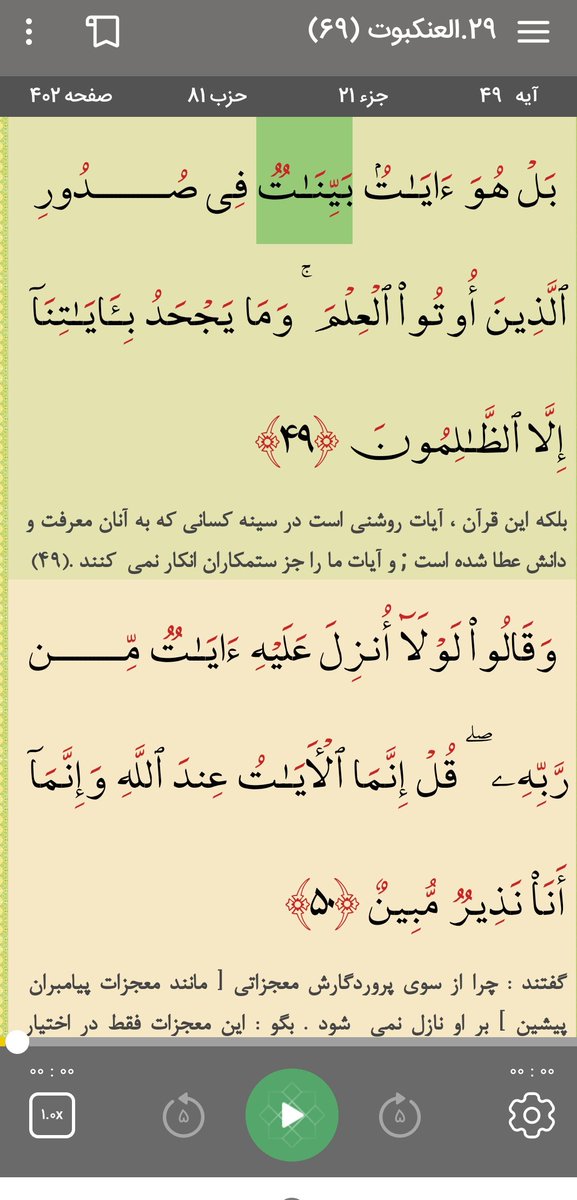 ۲۹.العنكبوت (۶۹)
آیه ۴۹ جزء ۲۱ حزب ۸۱ صفحه ۴۰۲
بَلْ هُوَ ءَايَـٰتٌۢ بَيِّنَـٰتٌ فِى صُـــــدُورِ
ٱلَّذِينَ أُوتُوا۟ ٱلْعِلْمَ ۚ وَمَا يَجْحَدُ بِـَٔايَـٰتِنَآ
إِلَّا ٱلظَّـٰلِمُونَ ﴿۴۹﴾
بلکه این قرآن ، آیات روشنی است در سینه کسانی که به آنان معرفت و
دانش عطا شده است ; و آیات ما را جز ستمکاران انکار نمی کنند .(۴۹)
وَقَالُوا۟ لَوْلَآ أُنزِلَ عَلَيْهِ ءَايَـٰتٌ مِّـــــن
رَّبِّهِۦ ۖ قُلْ إِنَّمَا ٱلْـَٔايَـٰتُ عِندَ ٱللَّهِ وَإِنَّمَآ
أَنَا۠ نَذِيرٌ مُّبِينٌ ﴿۵۰﴾
گفتند : چرا از سوی پروردگارش معجزاتی [ مانند معجزات پیامبران
پیشین ] بر او نازل نمی شود . بگو : این معجزات فقط در اختیار
۰۰ : ۰۰ ۰۰ : ۰۰
۱.۰x ۵ ۵